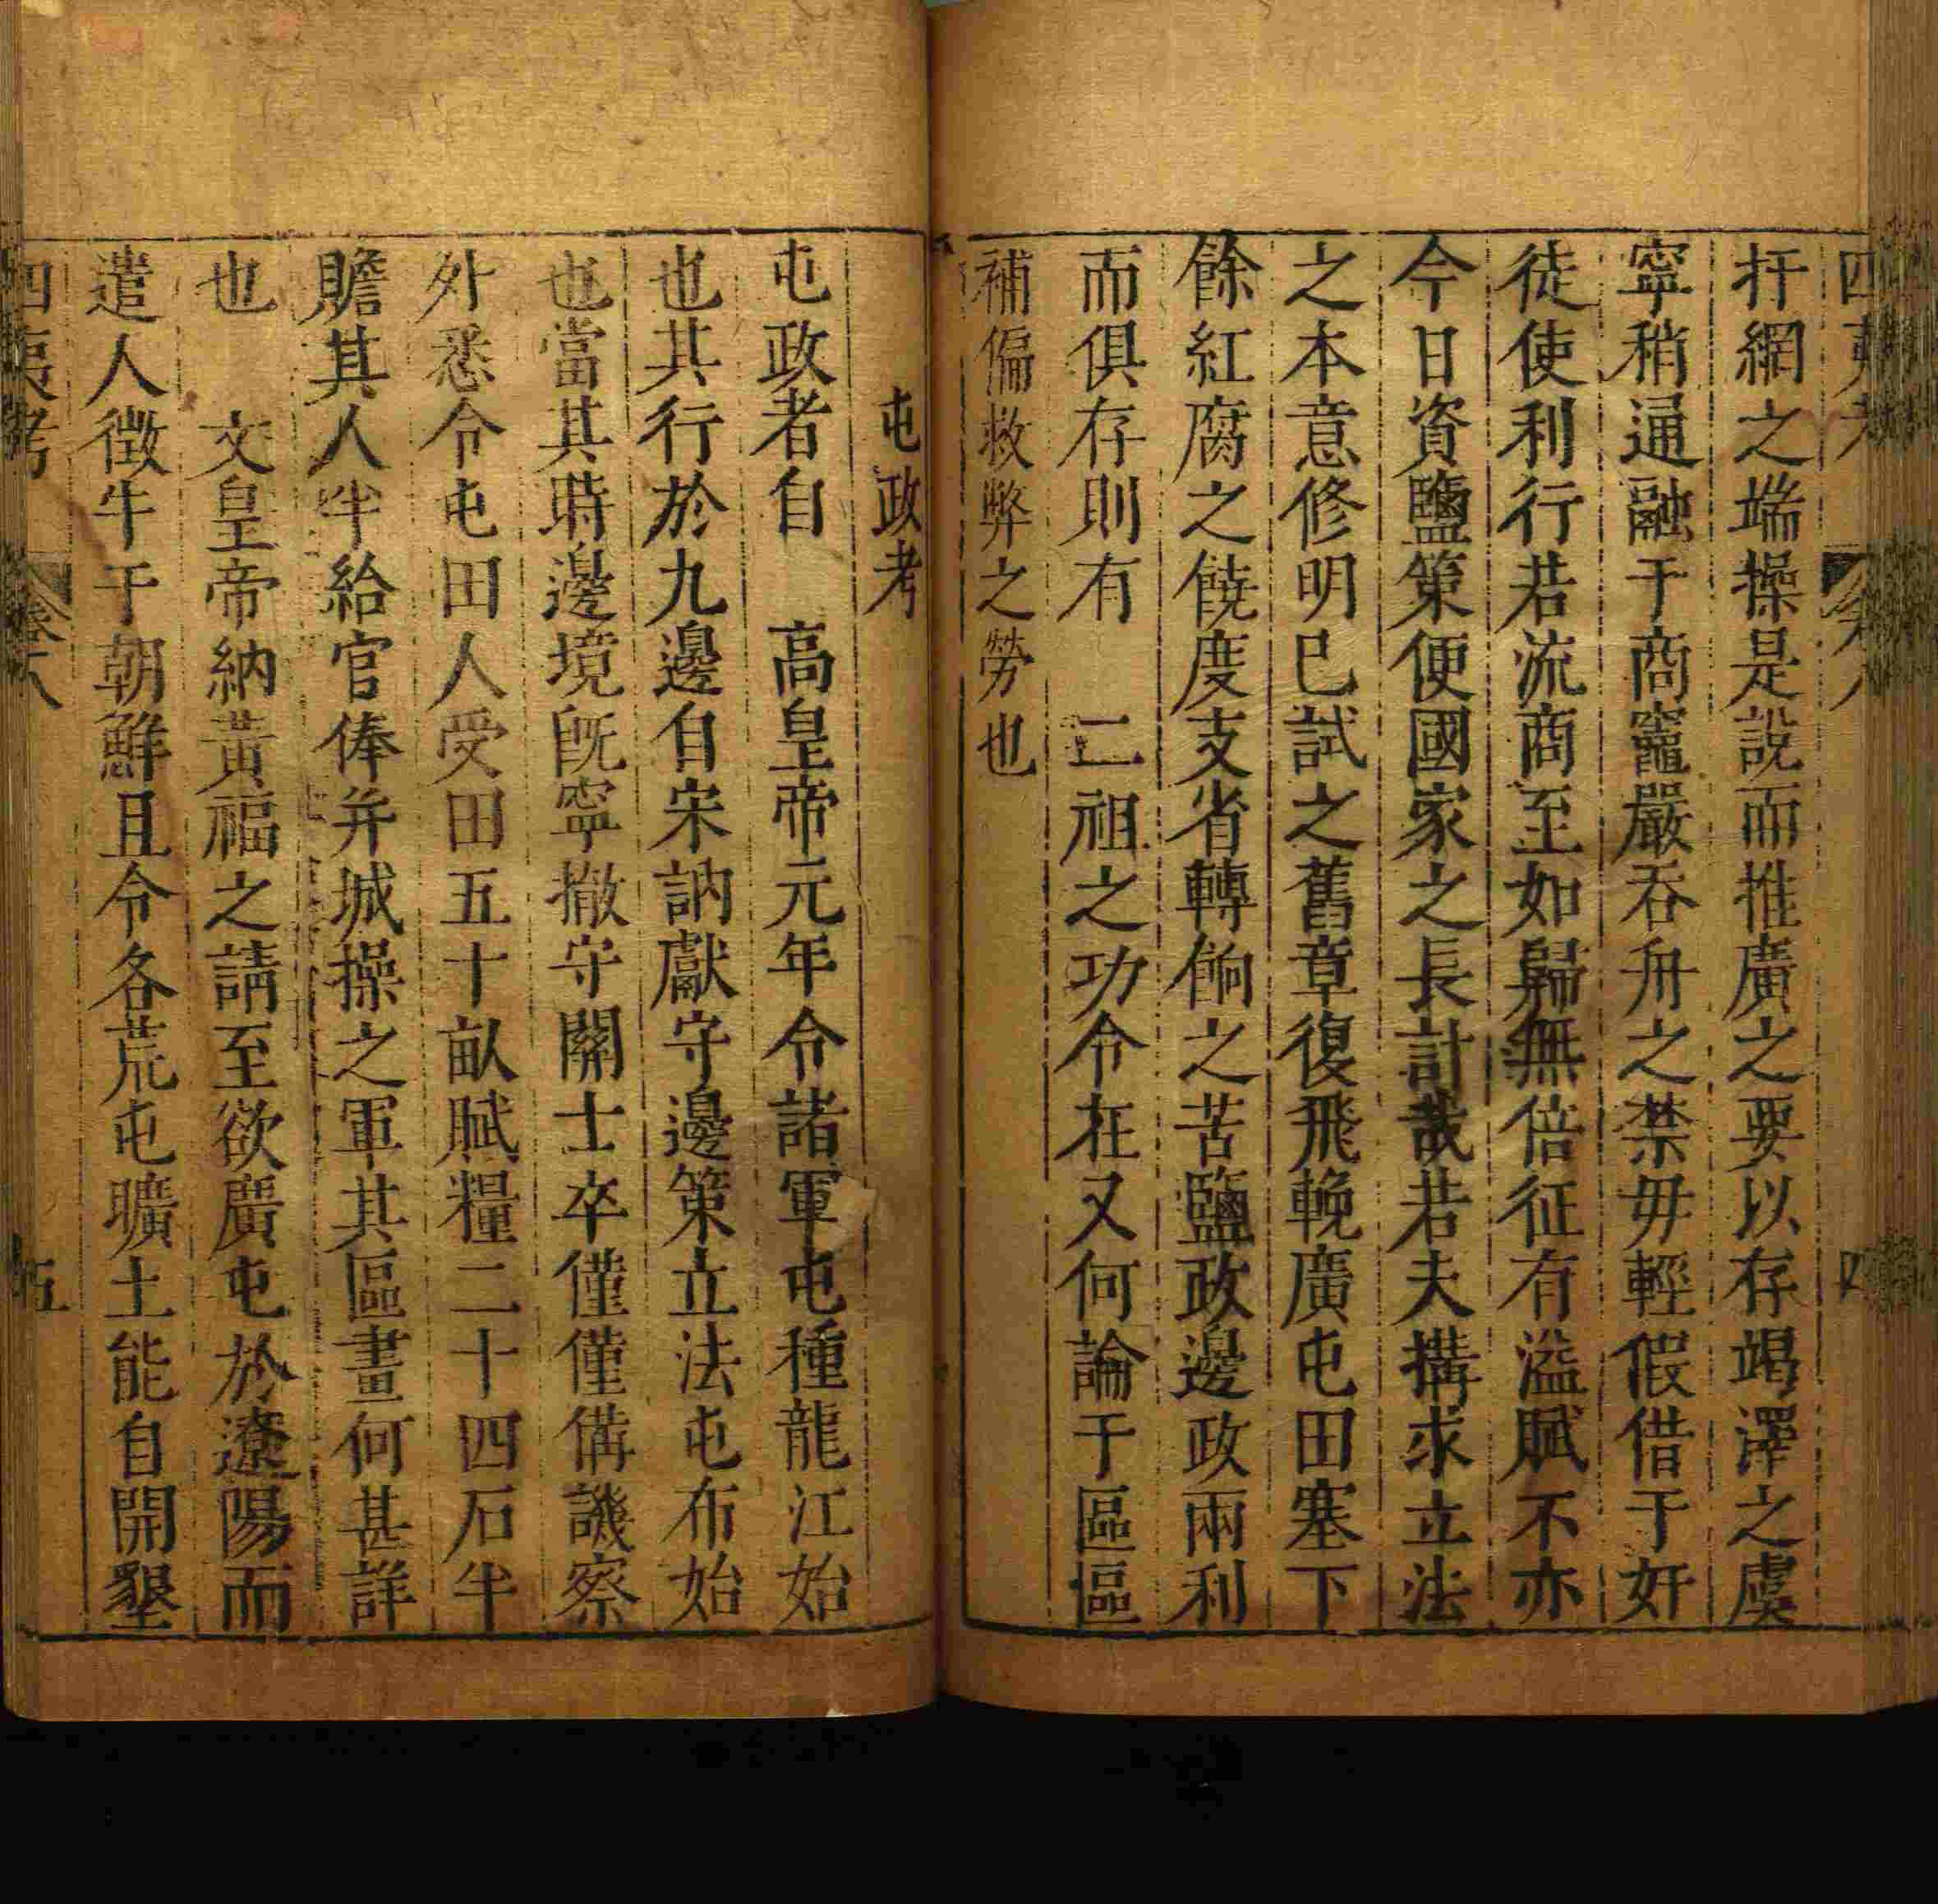 扞網之端操是說而推廣之要以存竭澤之虞
寧稍通融于商竈嚴吞舟之禁毋輕假借于奸
徒使利行若流商至如歸無倍征有溢賦不亦
今日資鹽策便國家之長計哉若夫搆求立法
之本意修明已試之舊章復飛輓廣屯田塞下
餘紅腐之饒度支省轉餉之苦鹽政邊政兩利
而俱存則有　二祖之功令在又何論于區區
補偏救弊之勞也
屯政考
屯政者自　高皇帝元年令諸軍屯種龍江始
也其行於九邊自宋訥獻守邊策立法屯布始
也當其時邊境旣寧撤守關士卒僅僅備譏察
外悉令屯田人受田五十畝賦糧二十四石半
贍其人半給官俸并城操之軍其區畫何甚詳
也　文皇帝納黃福之請至欲廣屯於遼陽而
遣人徵牛于朝鮮且令各荒屯曠土能自開墾
四夷考　卷八　五